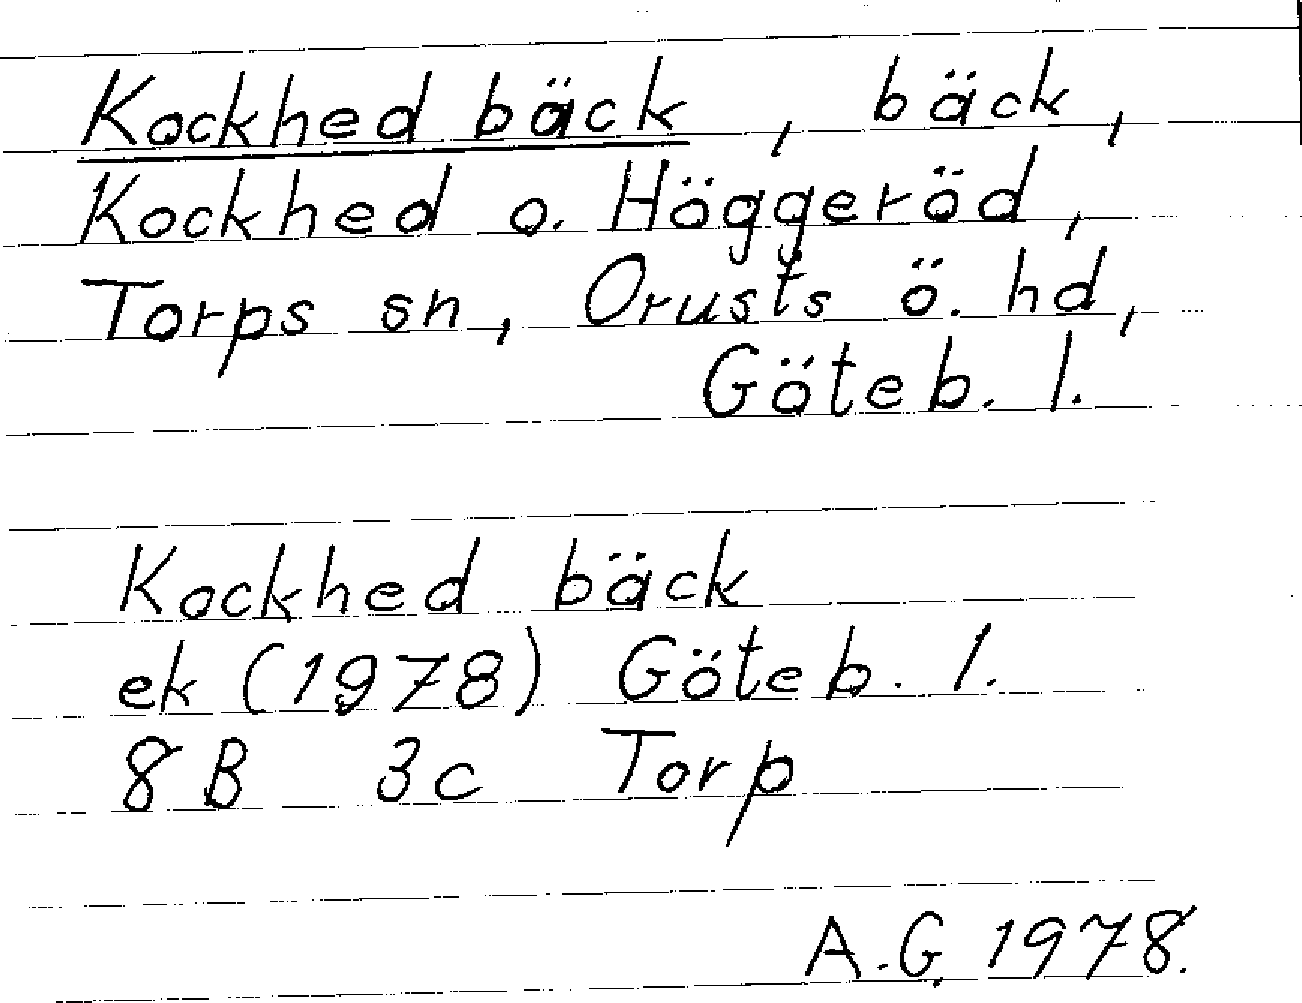 Kockhed bäck, bäck,
Kockhed o. Höggeröd,
Torps sn, Orusts ö. hd,
Göteb. l.
Kockhed bäck
ek (1978) Göteb. l.
8B 3c Torp
A.G. 1978.